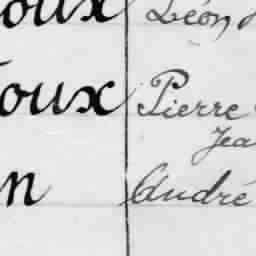 oux Léon
oux Pierre
Jea
n André